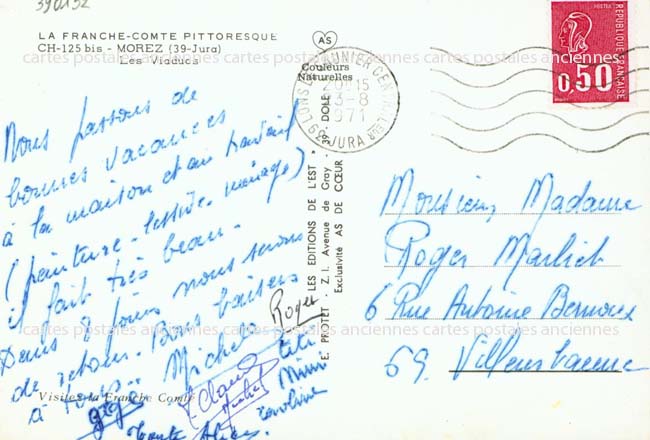 390152
LA FRANCHE-COMTE PITTORESQUE
CH-125 bis - MOREZ (39-Jura)
Les Viaducs
AS
Couleurs
Naturelles
39 LONS-LE-SAUNIER
20H15
3-8
1971
JURA
0,50
REPUBLIQUE FRANÇAISE
Nous passons de
bonnes vacances
à la maison et au travail
(peinture - lessive - ménage)
il fait très beau.
Dans 8 jours nous serons
de retour. Bons baisers
à tous.
Michel
Roger
Titi
Mimi
Caroline
gégé
Claude
Michel
Tante
Visitez la Franche Comté
E. PROTET - Z. I. Avenue de Gray - 39 - DOLE
LES EDITIONS DE L'EST
Exclusivité AS DE CŒUR
Monsieur Madame
Roger
6 Rue Antoine
69. Villeurbanne
cartes postales anciennes cartes postales anciennes cartes postales anciennes
cartes postales anciennes cartes postales anciennes cartes postales anciennes